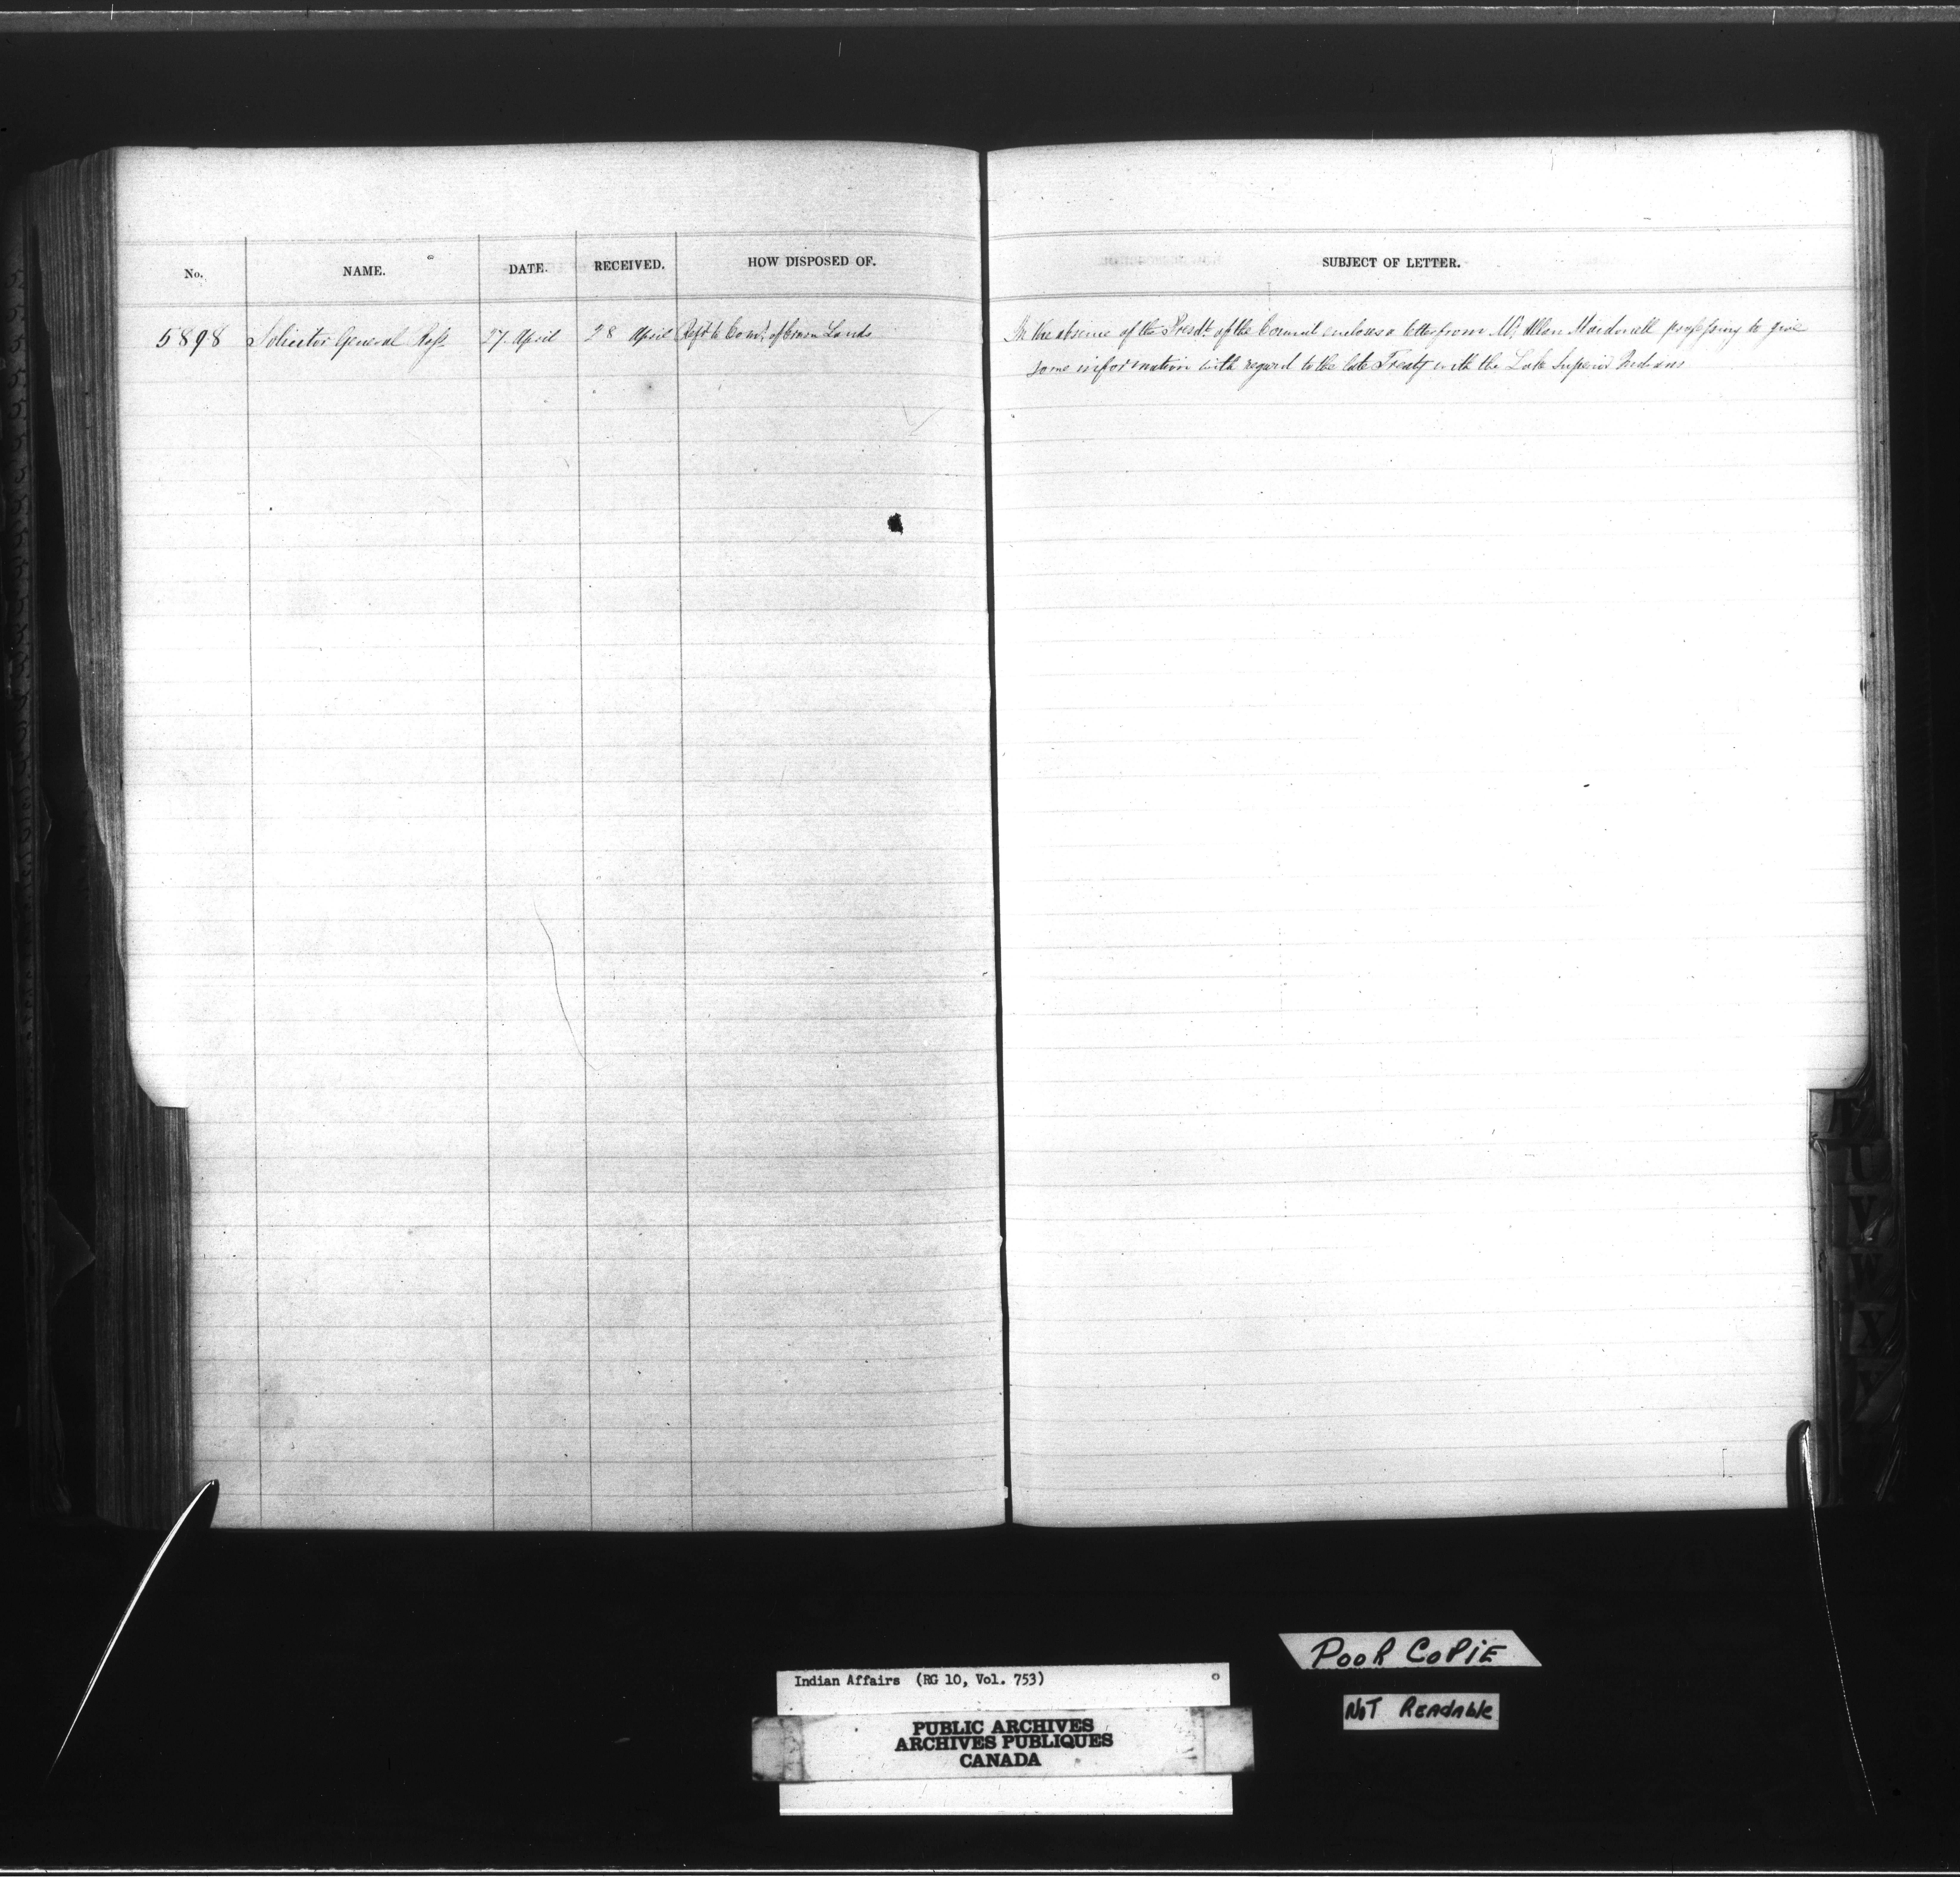 No. NAME. DATE. RECEIVED. HOW DISPOSED OF. SUBJECT OF LETTER.
5898 Solicitor General Ross 27 April 28 April Refd to Comr of Crown Lands In the absence of the Presdt of the Council encloses a letter from Mr Allan Macdonell professing to give
some information with regard to the late Treaty with the Lake Superior Indians
T
U
V
W
X
Y
POOR COPIE
Indian Affairs (RG 10, Vol. 753)
NOT Readable
PUBLIC ARCHIVES
ARCHIVES PUBLIQUES
CANADA